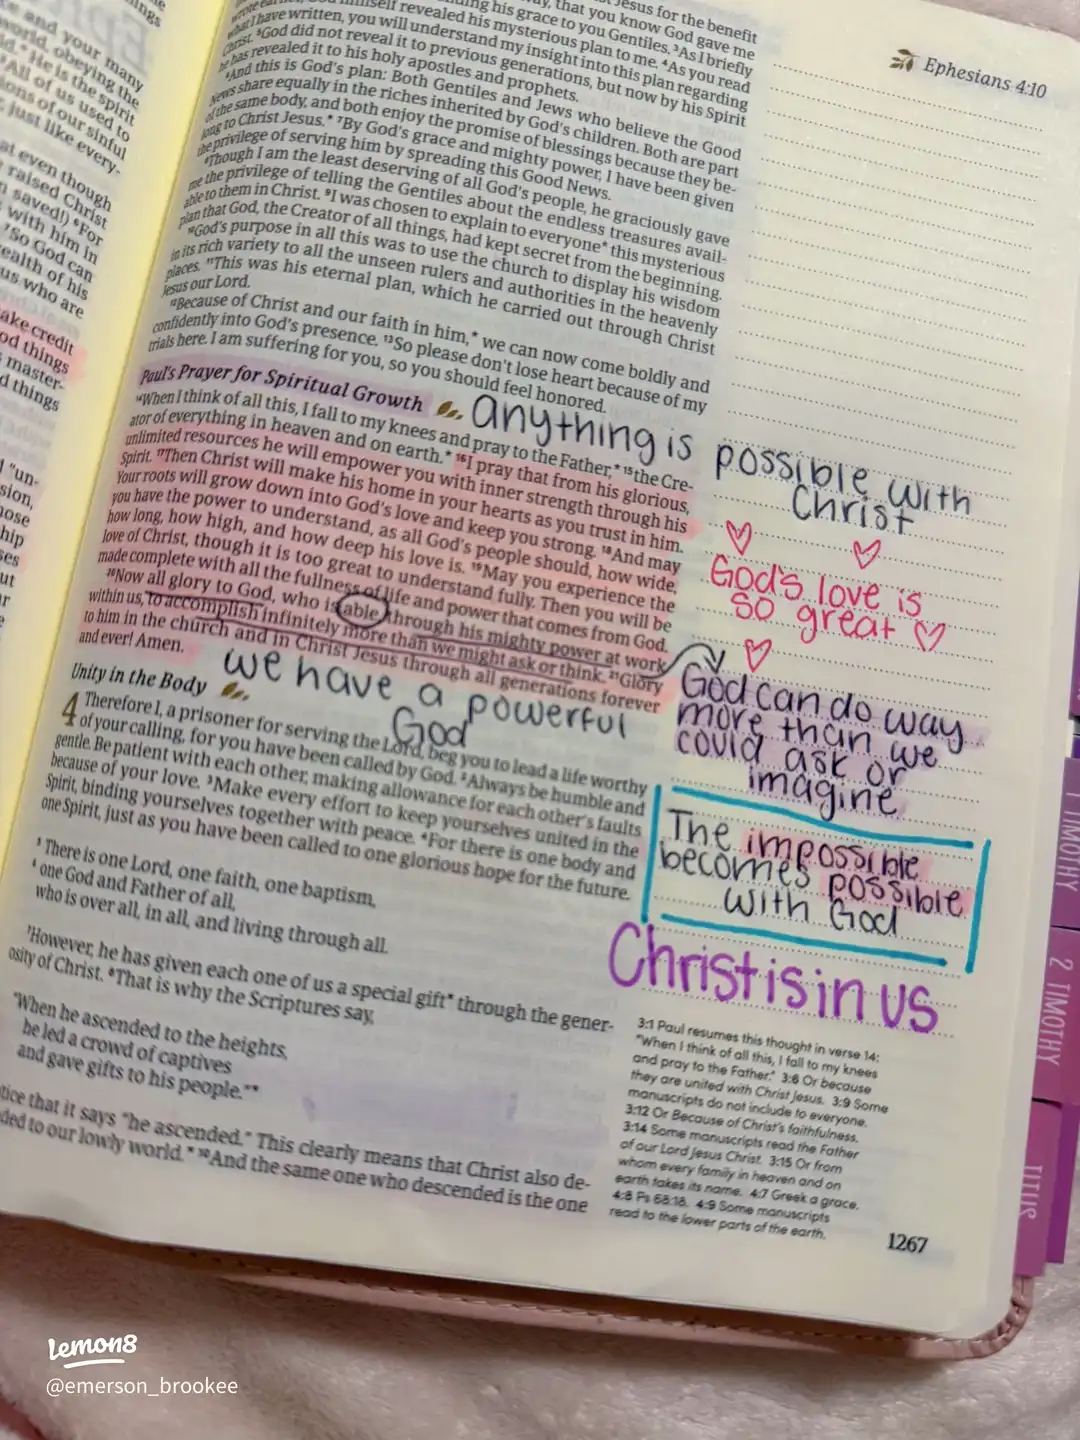 Ephesians 4:10
Jesus for the benefit
way, that you know God gave me
his grace to you Gentiles. ³As I briefly
himself revealed his mysterious plan to me. ⁴As you read
what I have written, you will understand my insight into this plan regarding
Christ. ⁵God did not reveal it to previous generations, but now by his Spirit
he has revealed it to his holy apostles and prophets.
⁶And this is God's plan: Both Gentiles and Jews who believe the Good
News share equally in the riches inherited by God's children. Both are part
of the same body, and both enjoy the promise of blessings because they be-
long to Christ Jesus.* ⁷By God's grace and mighty power, I have been given
the privilege of serving him by spreading this Good News.
⁸Though I am the least deserving of all God's people, he graciously gave
me the privilege of telling the Gentiles about the endless treasures avail-
able to them in Christ. ⁹I was chosen to explain to everyone* this mysterious
plan that God, the Creator of all things, had kept secret from the beginning.
¹⁰God's purpose in all this was to use the church to display his wisdom
in its rich variety to all the unseen rulers and authorities in the heavenly
places. ¹¹This was his eternal plan, which he carried out through Christ
Jesus our Lord.
¹²Because of Christ and our faith in him,* we can now come boldly and
confidently into God's presence. ¹³So please don't lose heart because of my
trials here. I am suffering for you, so you should feel honored.
Paul's Prayer for Spiritual Growth
¹⁴When I think of all this, I fall to my knees and pray to the Father,* ¹⁵the Cre-
ator of everything in heaven and on earth.* ¹⁶I pray that from his glorious,
unlimited resources he will empower you with inner strength through his
Spirit. ¹⁷Then Christ will make his home in your hearts as you trust in him.
Your roots will grow down into God's love and keep you strong. ¹⁸And may
you have the power to understand, as all God's people should, how wide,
how long, how high, and how deep his love is. ¹⁹May you experience the
love of Christ, though it is too great to understand fully. Then you will be
made complete with all the fullness of life and power that comes from God.
²⁰Now all glory to God, who is able, through his mighty power at work
within us, to accomplish infinitely more than we might ask or think. ²¹Glory
to him in the church and in Christ Jesus through all generations forever
and ever! Amen.
Unity in the Body
4 Therefore I, a prisoner for serving the Lord, beg you to lead a life worthy
of your calling, for you have been called by God. ²Always be humble and
gentle. Be patient with each other, making allowance for each other's faults
because of your love. ³Make every effort to keep yourselves united in the
Spirit, binding yourselves together with peace. ⁴For there is one body and
one Spirit, just as you have been called to one glorious hope for the future.
⁵ There is one Lord, one faith, one baptism,
⁶ one God and Father of all,
who is over all, in all, and living through all.
⁷However, he has given each one of us a special gift* through the gener-
osity of Christ. ⁸That is why the Scriptures say,
"When he ascended to the heights,
he led a crowd of captives
and gave gifts to his people."*
tice that it says "he ascended." This clearly means that Christ also de-
ded to our lowly world.* ¹⁰And the same one who descended is the one
anything is possible with
Christ
God's love is
so great
we have a powerful
God
God can do way
more than we
could ask or
imagine
The impossible
becomes possible
with God
Christ is in us
3:1 Paul resumes this thought in verse 14:
"When I think of all this, I fall to my knees
and pray to the Father." 3:6 Or because
they are united with Christ Jesus. 3:9 Some
manuscripts do not include to everyone.
3:12 Or Because of Christ's faithfulness.
3:14 Some manuscripts read the Father
of our Lord Jesus Christ. 3:15 Or from
whom every family in heaven and on
earth takes its name. 4:7 Greek a grace.
4:8 Ps 68:18. 4:9 Some manuscripts
read to the lower parts of the earth.
1267
1 TIMOTHY
2 TIMOTHY
TITUS
e and your many
world, obeying the
He is the spirit
All of us used to
ions of our sinful
just like every-
at even though
raised Christ
saved!) ⁶For
with him in
⁷So God can
ealth of his
us who are
ake credit
od things
master-
d things
"un-
sion,
hose
hip
ses
ut
lemon8
@emerson_brookee